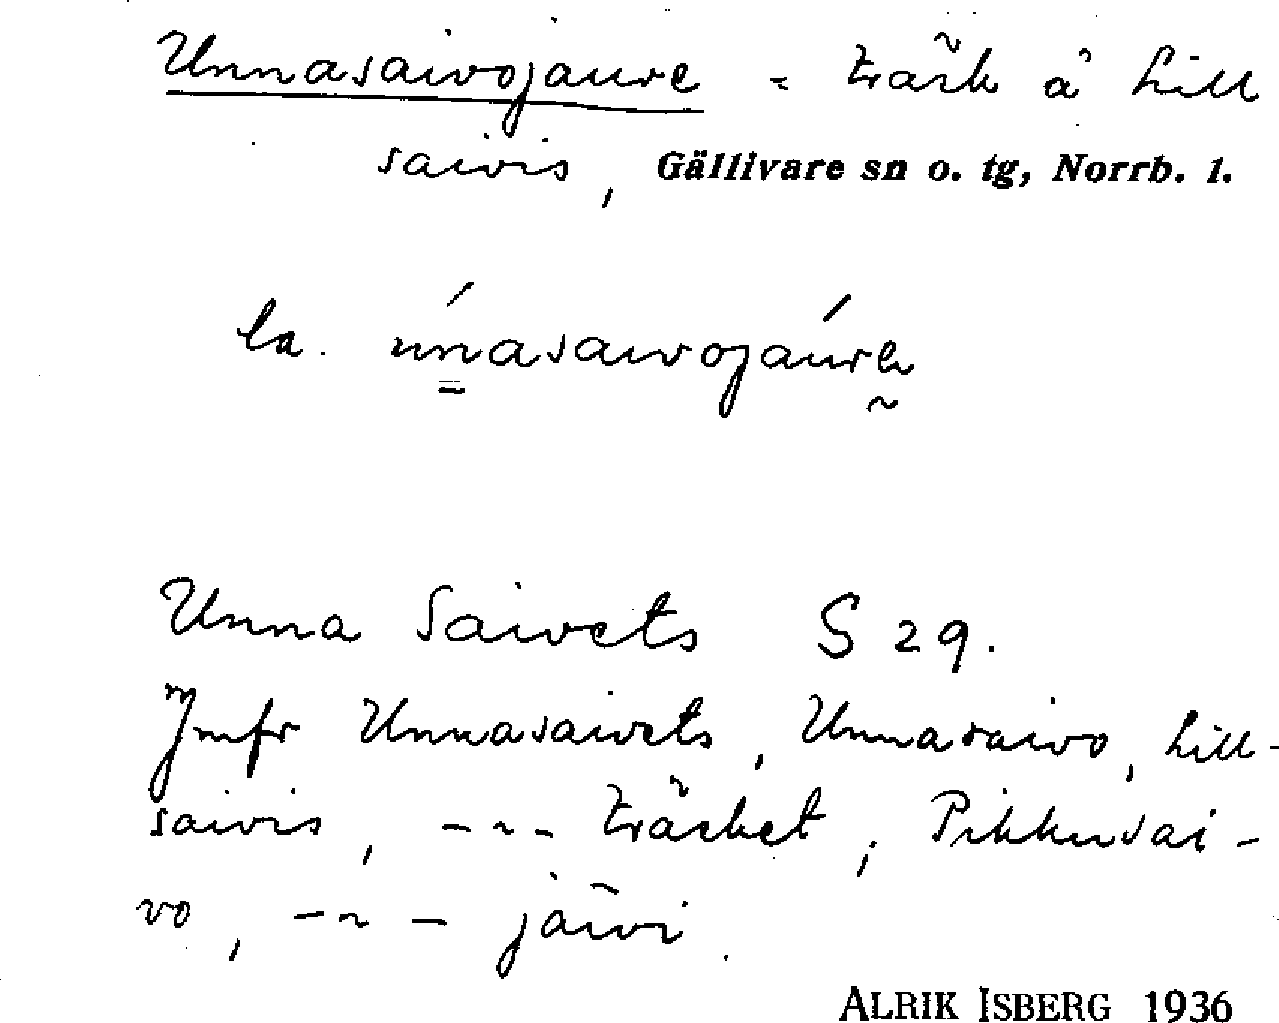 Unnasaivojaure = träsk å Lill
saivis, Gällivare sn o. tg, Norrb. l.
la. únasaivojáure
Unna Saivets S 29.
Jmfr Unnasaivets, Unnasaivo, Lill-
saivis, -"- träsket, Pikkusai-
vo, -"- järvi.
ALRIK ISBERG 1936